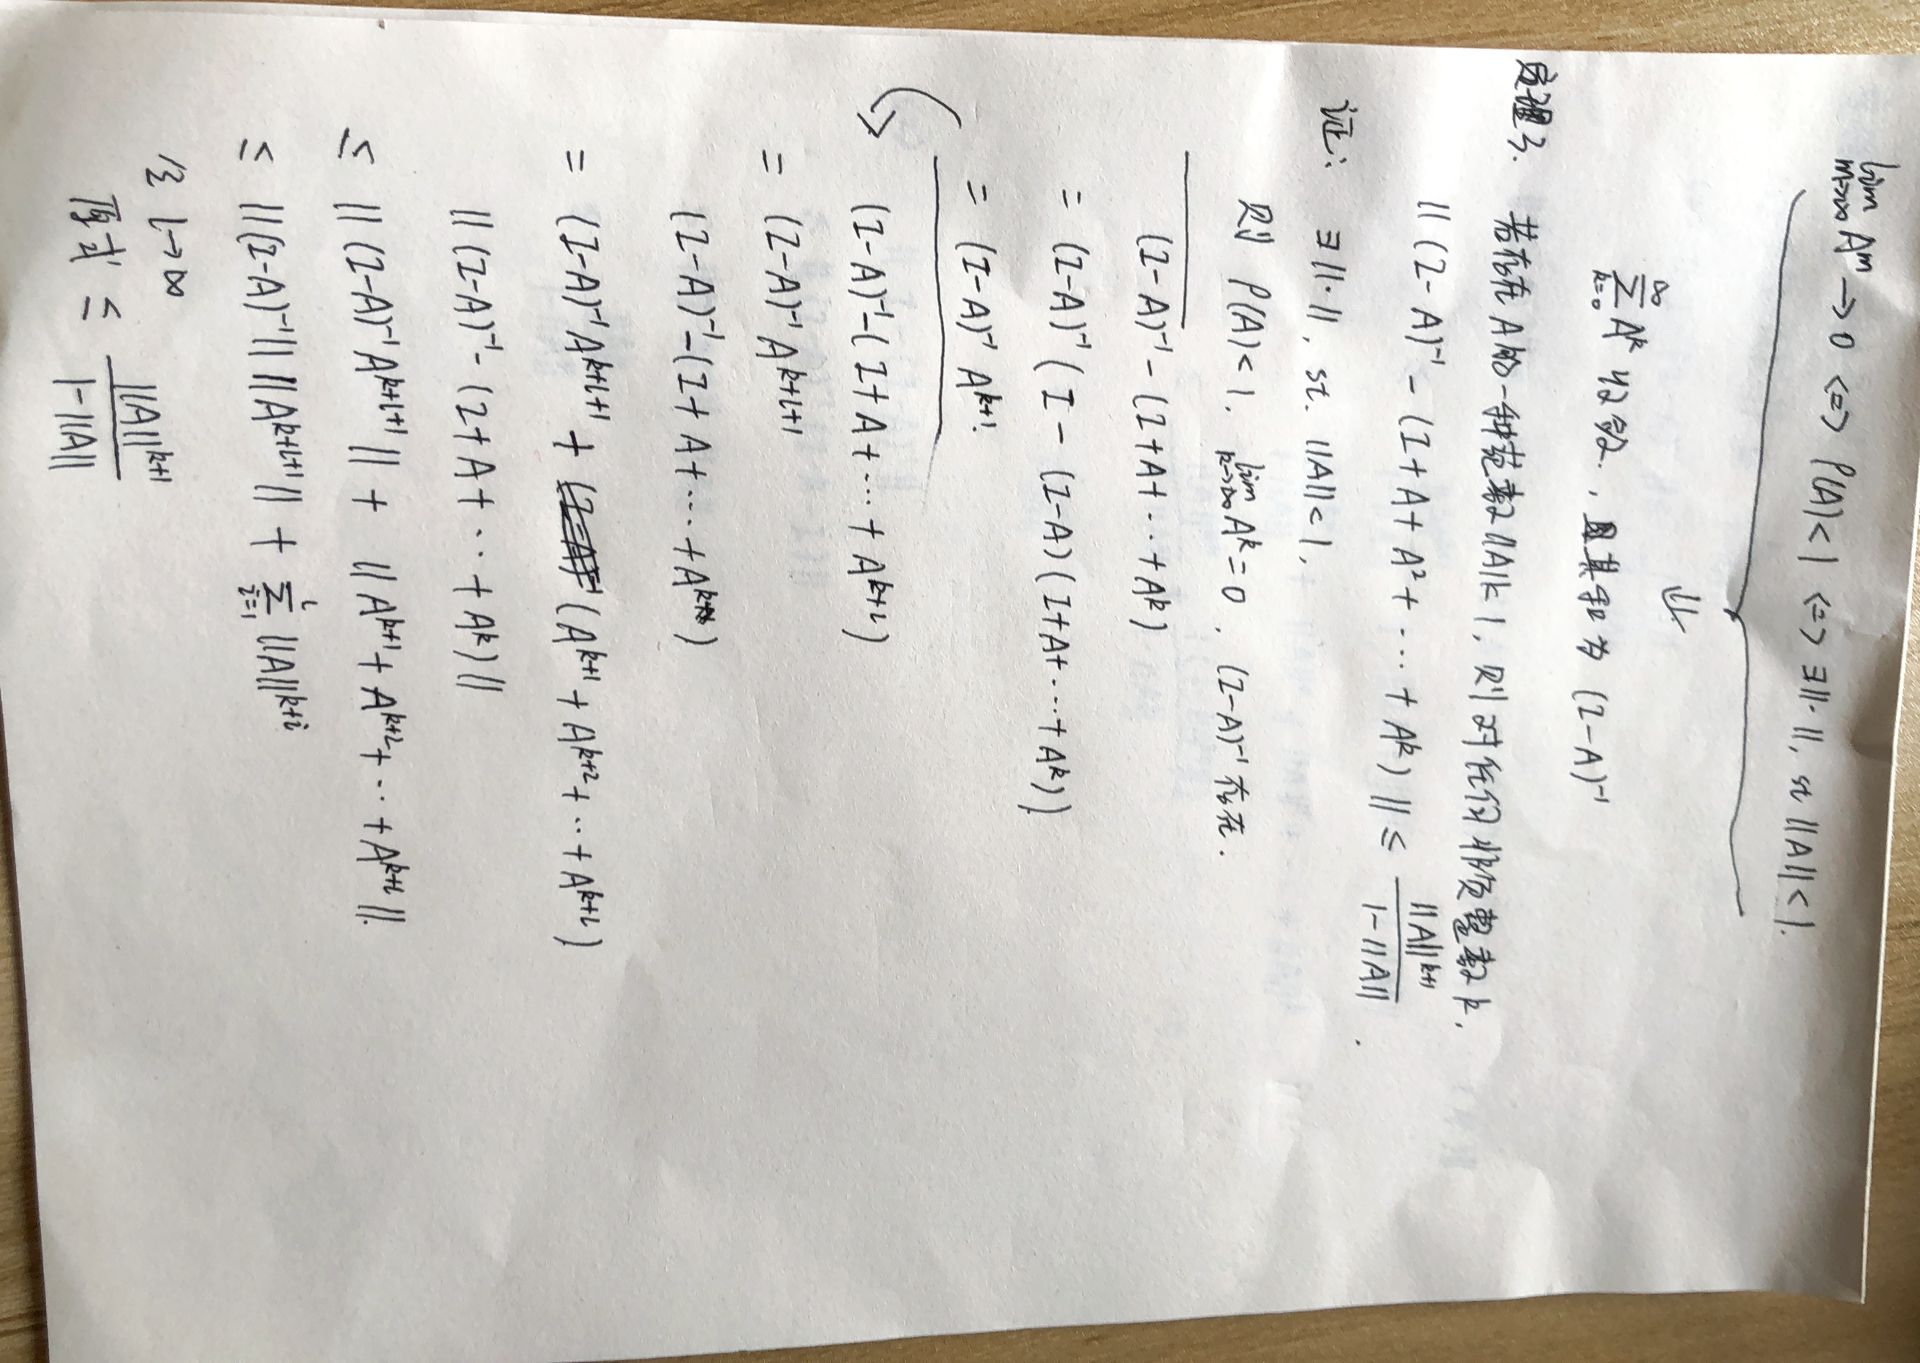 lim_{m→∞} A^m → 0 <=> ρ(A)<1 <=> ∃||·||, st ||A||<1.
⇓
∑_{k=0}^{∞} A^k 收敛., 且其和为 (I-A)^{-1}
定理3. 若存在A的一种范数||A||<1, 则对任何非负整数k,
|| (I-A)^{-1} - (I+A+A²+···+A^k) || ≤ ||A||^{k+1} / (1-||A||).
证: ∃||·||, st. ||A||<1,
则 ρ(A)<1. lim_{k→∞} A^k=0. (I-A)^{-1}存在.
(I-A)^{-1} - (I+A+···+A^k)
= (I-A)^{-1} (I - (I-A)(I+A+···+A^k)).
= (I-A)^{-1} A^{k+1}.
(I-A)^{-1} - (I+A+···+A^{k+l})
= (I-A)^{-1} A^{k+l+1}
(I-A)^{-1} - (I+A+···+A^k)
= (I-A)^{-1} A^{k+l+1} + (A^{k+1}+A^{k+2}+···+A^{k+l})
|| (I-A)^{-1} - (I+A+···+A^k) ||
≤ || (I-A)^{-1} A^{k+l+1} || + || A^{k+1}+A^{k+2}+···+A^{k+l} ||.
≤ ||(I-A)^{-1}|| ||A^{k+l+1}|| + ∑_{i=1}^{l} ||A||^{k+i}
令 l→∞
原式 ≤ ||A||^{k+1} / (1-||A||)